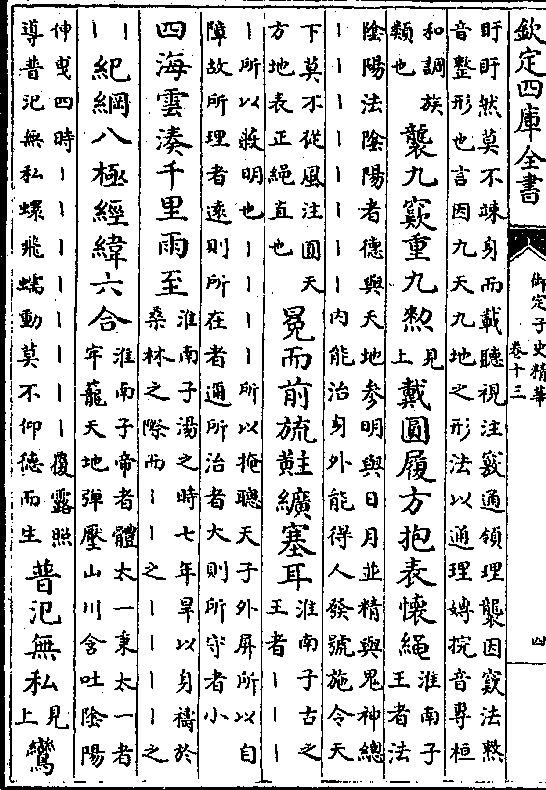 欽定四庫全書
御定子史精華
卷十三
四
盱盱然莫不竦身而載聽視注竅通領理襲因竅法㷀
音整形也言因九天九地之形法以通理嫥捖音專桓
和調族
類也
襲九竅重九㷀
見
上
戴圓履方抱表懷繩
淮南子
王者法
陰陽法陰陽者德與天地參明與日月並精與鬼神總
丨丨丨丨丨丨丨丨內能治身外能得人發號施令天
下莫不從風注圓天
方地表正繩直也
冕而前旒黈纊塞耳
淮南子古之
王者丨丨丨
丨所以蔽明也丨丨丨丨所以掩聰天子外屏所以自
障故所理者遠則所在者邇所治者大則所守者小
四海雲湊千里雨至
淮南子湯之時七年旱以身禱於
桑林之際而丨丨之丨丨丨丨之
丨
丨
紀綱八極經緯六合
淮南子帝者體太一秉太一者
牢籠天地彈壓山川含吐陰陽
伸曳四時丨丨丨丨丨丨丨丨覆露照
導普汜無私蠉飛蠕動莫不仰德而生
普汜無私
見
上
鸞